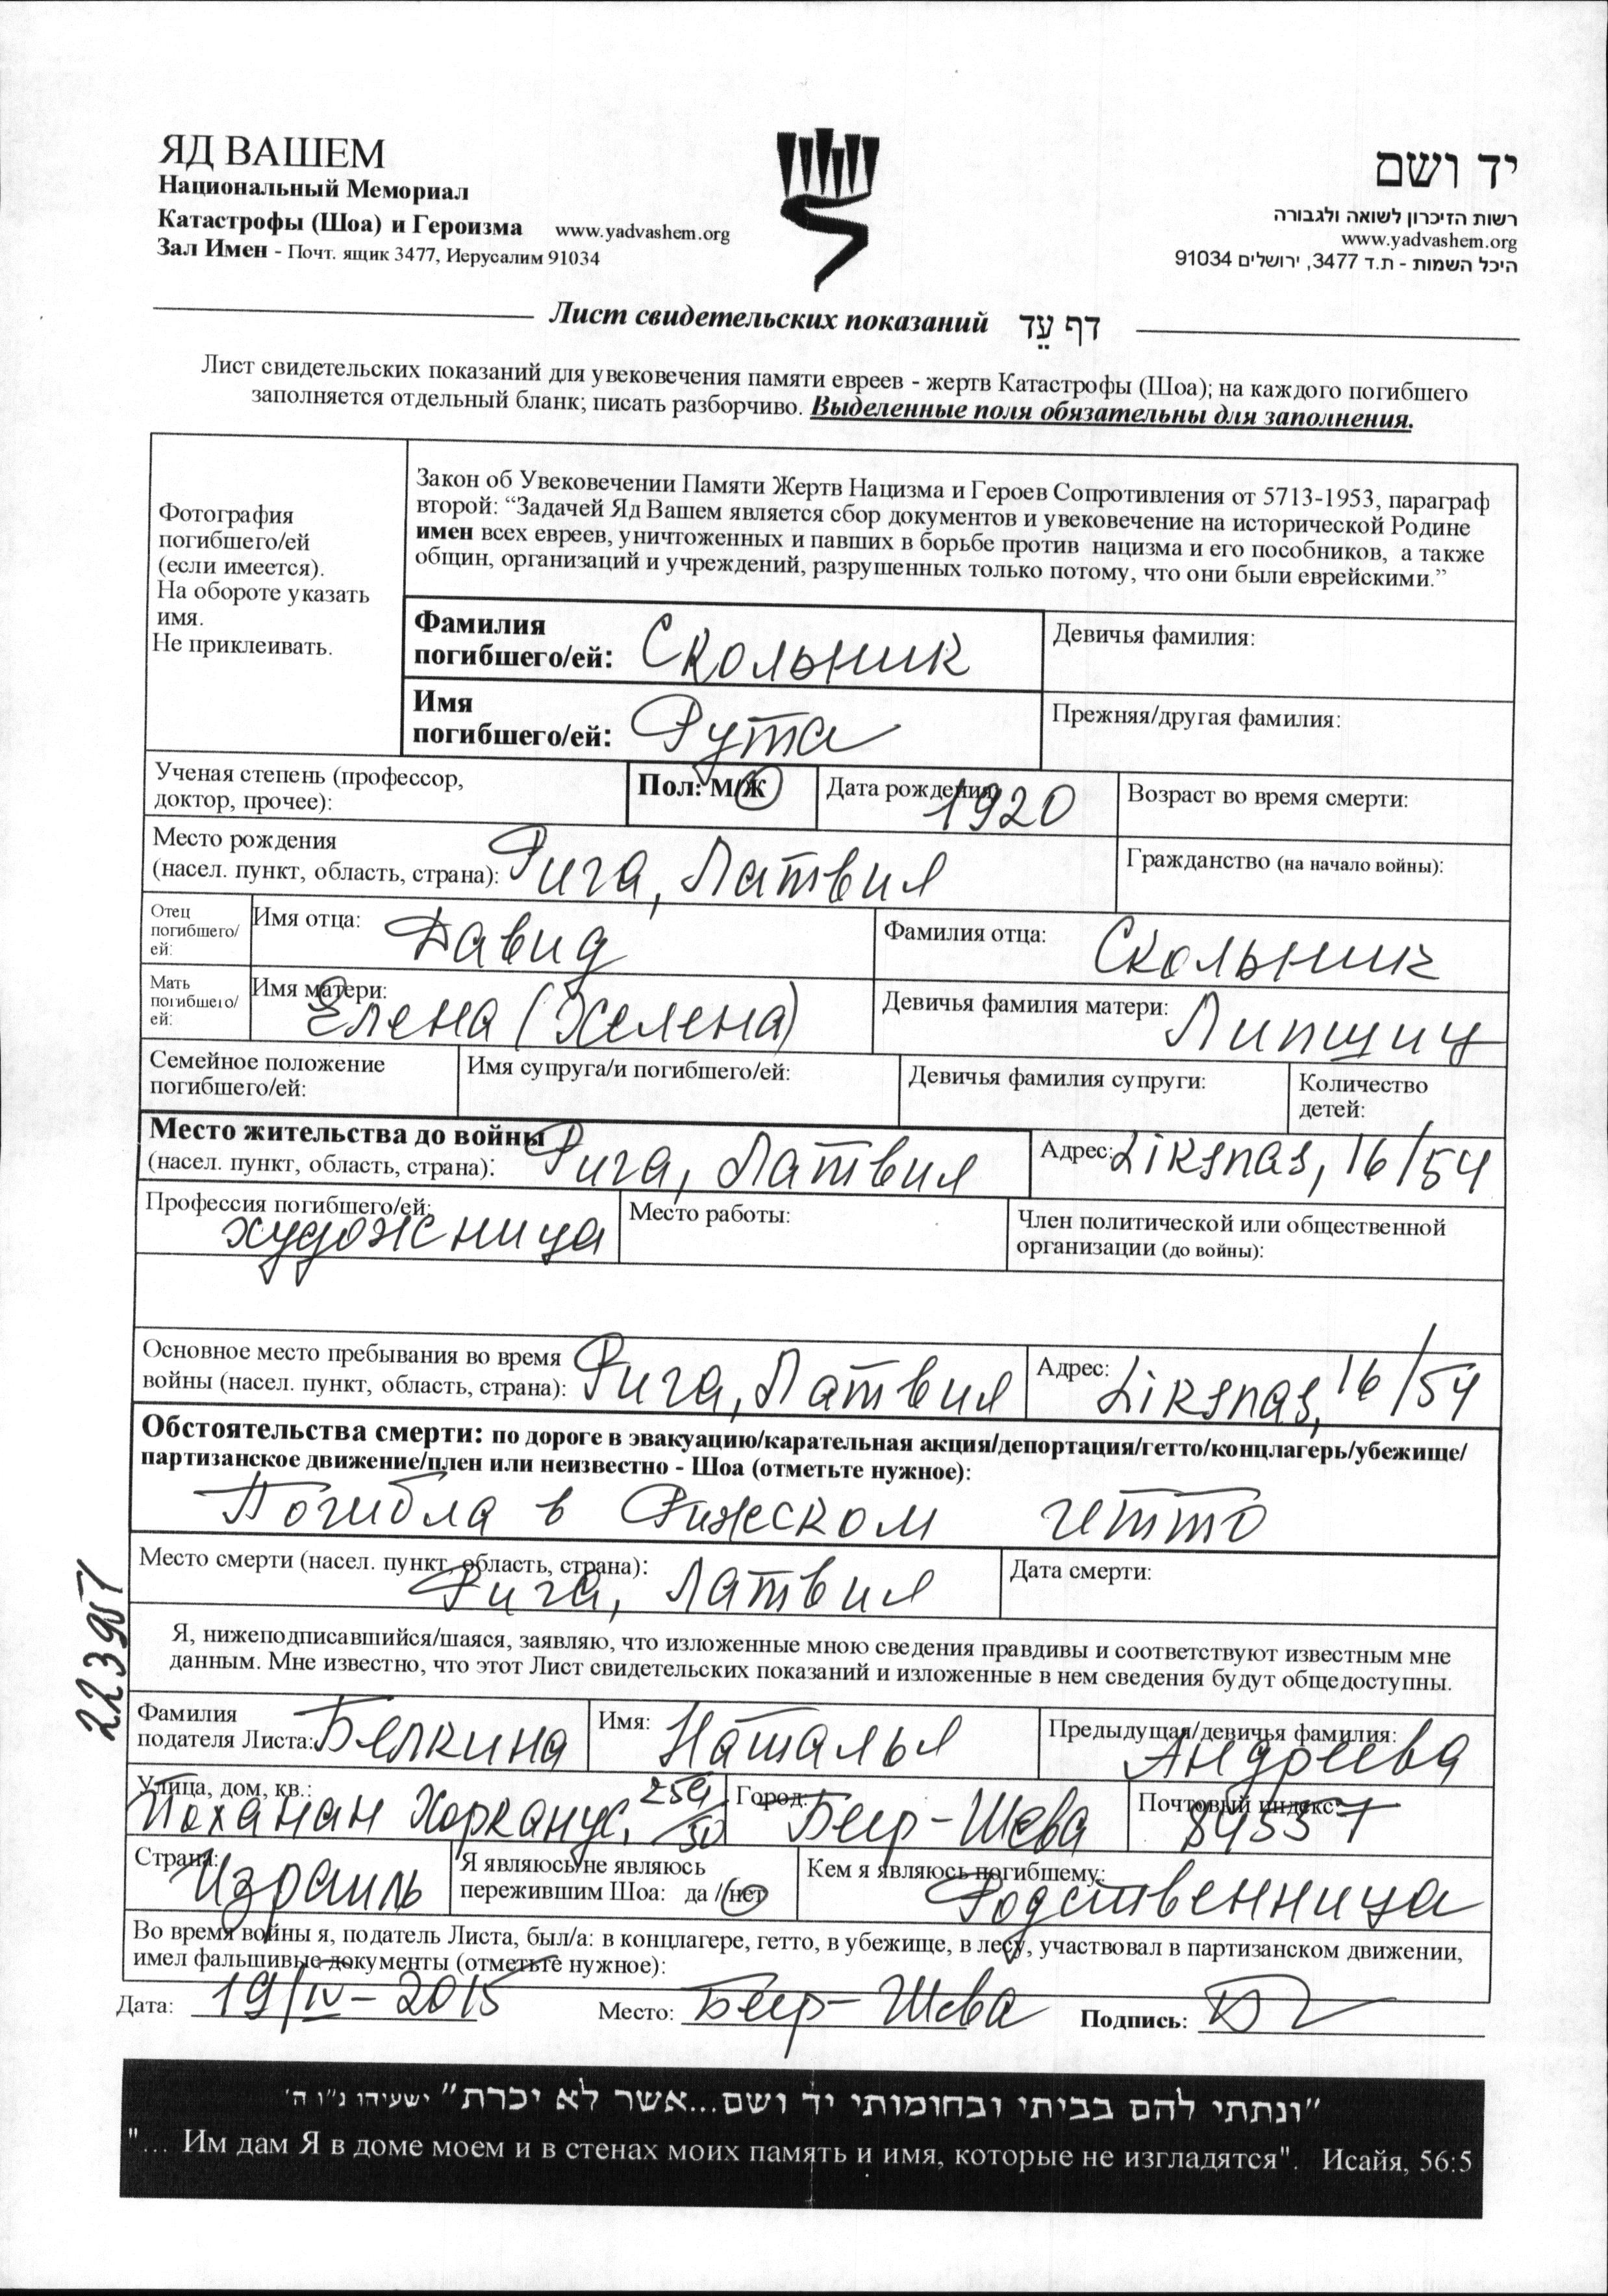 ЯД ВАШЕМ
Национальный Мемориал
Катастрофы (Шоа) и Героизма www.yadvashem.org
Зал Имен - Почт. ящик 3477, Иерусалим 91034
יד ושם
רשות הזיכרון לשואה ולגבורה
www.yadvashem.org
היכל השמות - ת.ד 3477, ירושלים 91034
Лист свидетельских показаний דף עֵד
Лист свидетельских показаний для увековечения памяти евреев - жертв Катастрофы (Шоа); на каждого погибшего
заполняется отдельный бланк; писать разборчиво. Выделенные поля обязательны для заполнения.
Фотография
погибшего/ей
(если имеется).
На обороте указать
имя.
Не приклеивать.
Закон об Увековечении Памяти Жертв Нацизма и Героев Сопротивления от 5713-1953, параграф
второй: “Задачей Яд Вашем является сбор документов и увековечение на исторической Родине
имен всех евреев, уничтоженных и павших в борьбе против нацизма и его пособников, а также
общин, организаций и учреждений, разрушенных только потому, что они были еврейскими.”
Фамилия
погибшего/ей: Скольник
Девичья фамилия:
Имя
погибшего/ей: Рута
Прежняя/другая фамилия:
Ученая степень (профессор,
доктор, прочее):
Пол: М/Ж
Дата рождения: 1920
Возраст во время смерти:
Место рождения
(насел. пункт, область, страна): Рига, Латвия
Гражданство (на начало войны):
Отец
погибшего/
ей:
Имя отца: Давид
Фамилия отца: Скольник
Мать
погибшего/
ей:
Имя матери: Елена (Хелена)
Девичья фамилия матери: Липщиц
Семейное положение
погибшего/ей:
Имя супруга/и погибшего/ей:
Девичья фамилия супруги:
Количество
детей:
Место жительства до войны
(насел. пункт, область, страна): Рига, Латвия
Адрес: Liksnas, 16/54
Профессия погибшего/ей: художница
Место работы:
Член политической или общественной
организации (до войны):
Основное место пребывания во время
войны (насел. пункт, область, страна): Рига, Латвия
Адрес: Liksnas, 16/54
Обстоятельства смерти: по дороге в эвакуацию/карательная акция/депортация/гетто/концлагерь/убежище/
партизанское движение/плен или неизвестно - Шоа (отметьте нужное):
Погибла в Рижском гетто
Место смерти (насел. пункт, область, страна): Рига, Латвия
Дата смерти:
223951
Я, нижеподписавшийся/шаяся, заявляю, что изложенные мною сведения правдивы и соответствуют известным мне
данным. Мне известно, что этот Лист свидетельских показаний и изложенные в нем сведения будут общедоступны.
Фамилия
подателя Листа: Белкина
Имя: Наталья
Предыдущая/девичья фамилия: Андреева
Улица, дом, кв.: Йоханан Хорканус, 259/50
Город: Беер-Шева
Почтовый индекс: 84557
Страна: Израиль
Я являюсь/не являюсь
пережившим Шоа: да / нет
Кем я являюсь погибшему: Родственница
Во время войны я, податель Листа, был/а: в концлагере, гетто, в убежище, в лесу, участвовал в партизанском движении,
имел фальшивые документы (отметьте нужное):
Дата: 19/IV-2015 Место: Беер-Шева Подпись:
"ונתתי להם בביתי ובחומותי יד ושם...אשר לא יכרת" ישעיהו נ"ו ה'
"... Им дам Я в доме моем и в стенах моих память и имя, которые не изгладятся". Исайя, 56:5